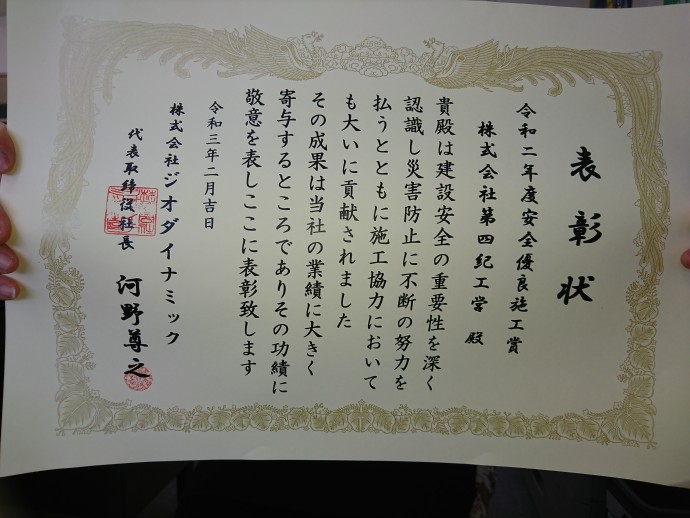 表彰状
令和二年度安全優良施工賞
株式会社第四紀工営 殿
貴殿は建設安全の重要性を深く
認識し災害防止に不断の努力を
払うとともに施工協力において
も大いに貢献されました
その成果は当社の業績に大きく
寄与するところでありその功績に
敬意を表しここに表彰致します
令和三年二月吉日
株式会社ジオダイナミック
代表取締役社長 河野尊之